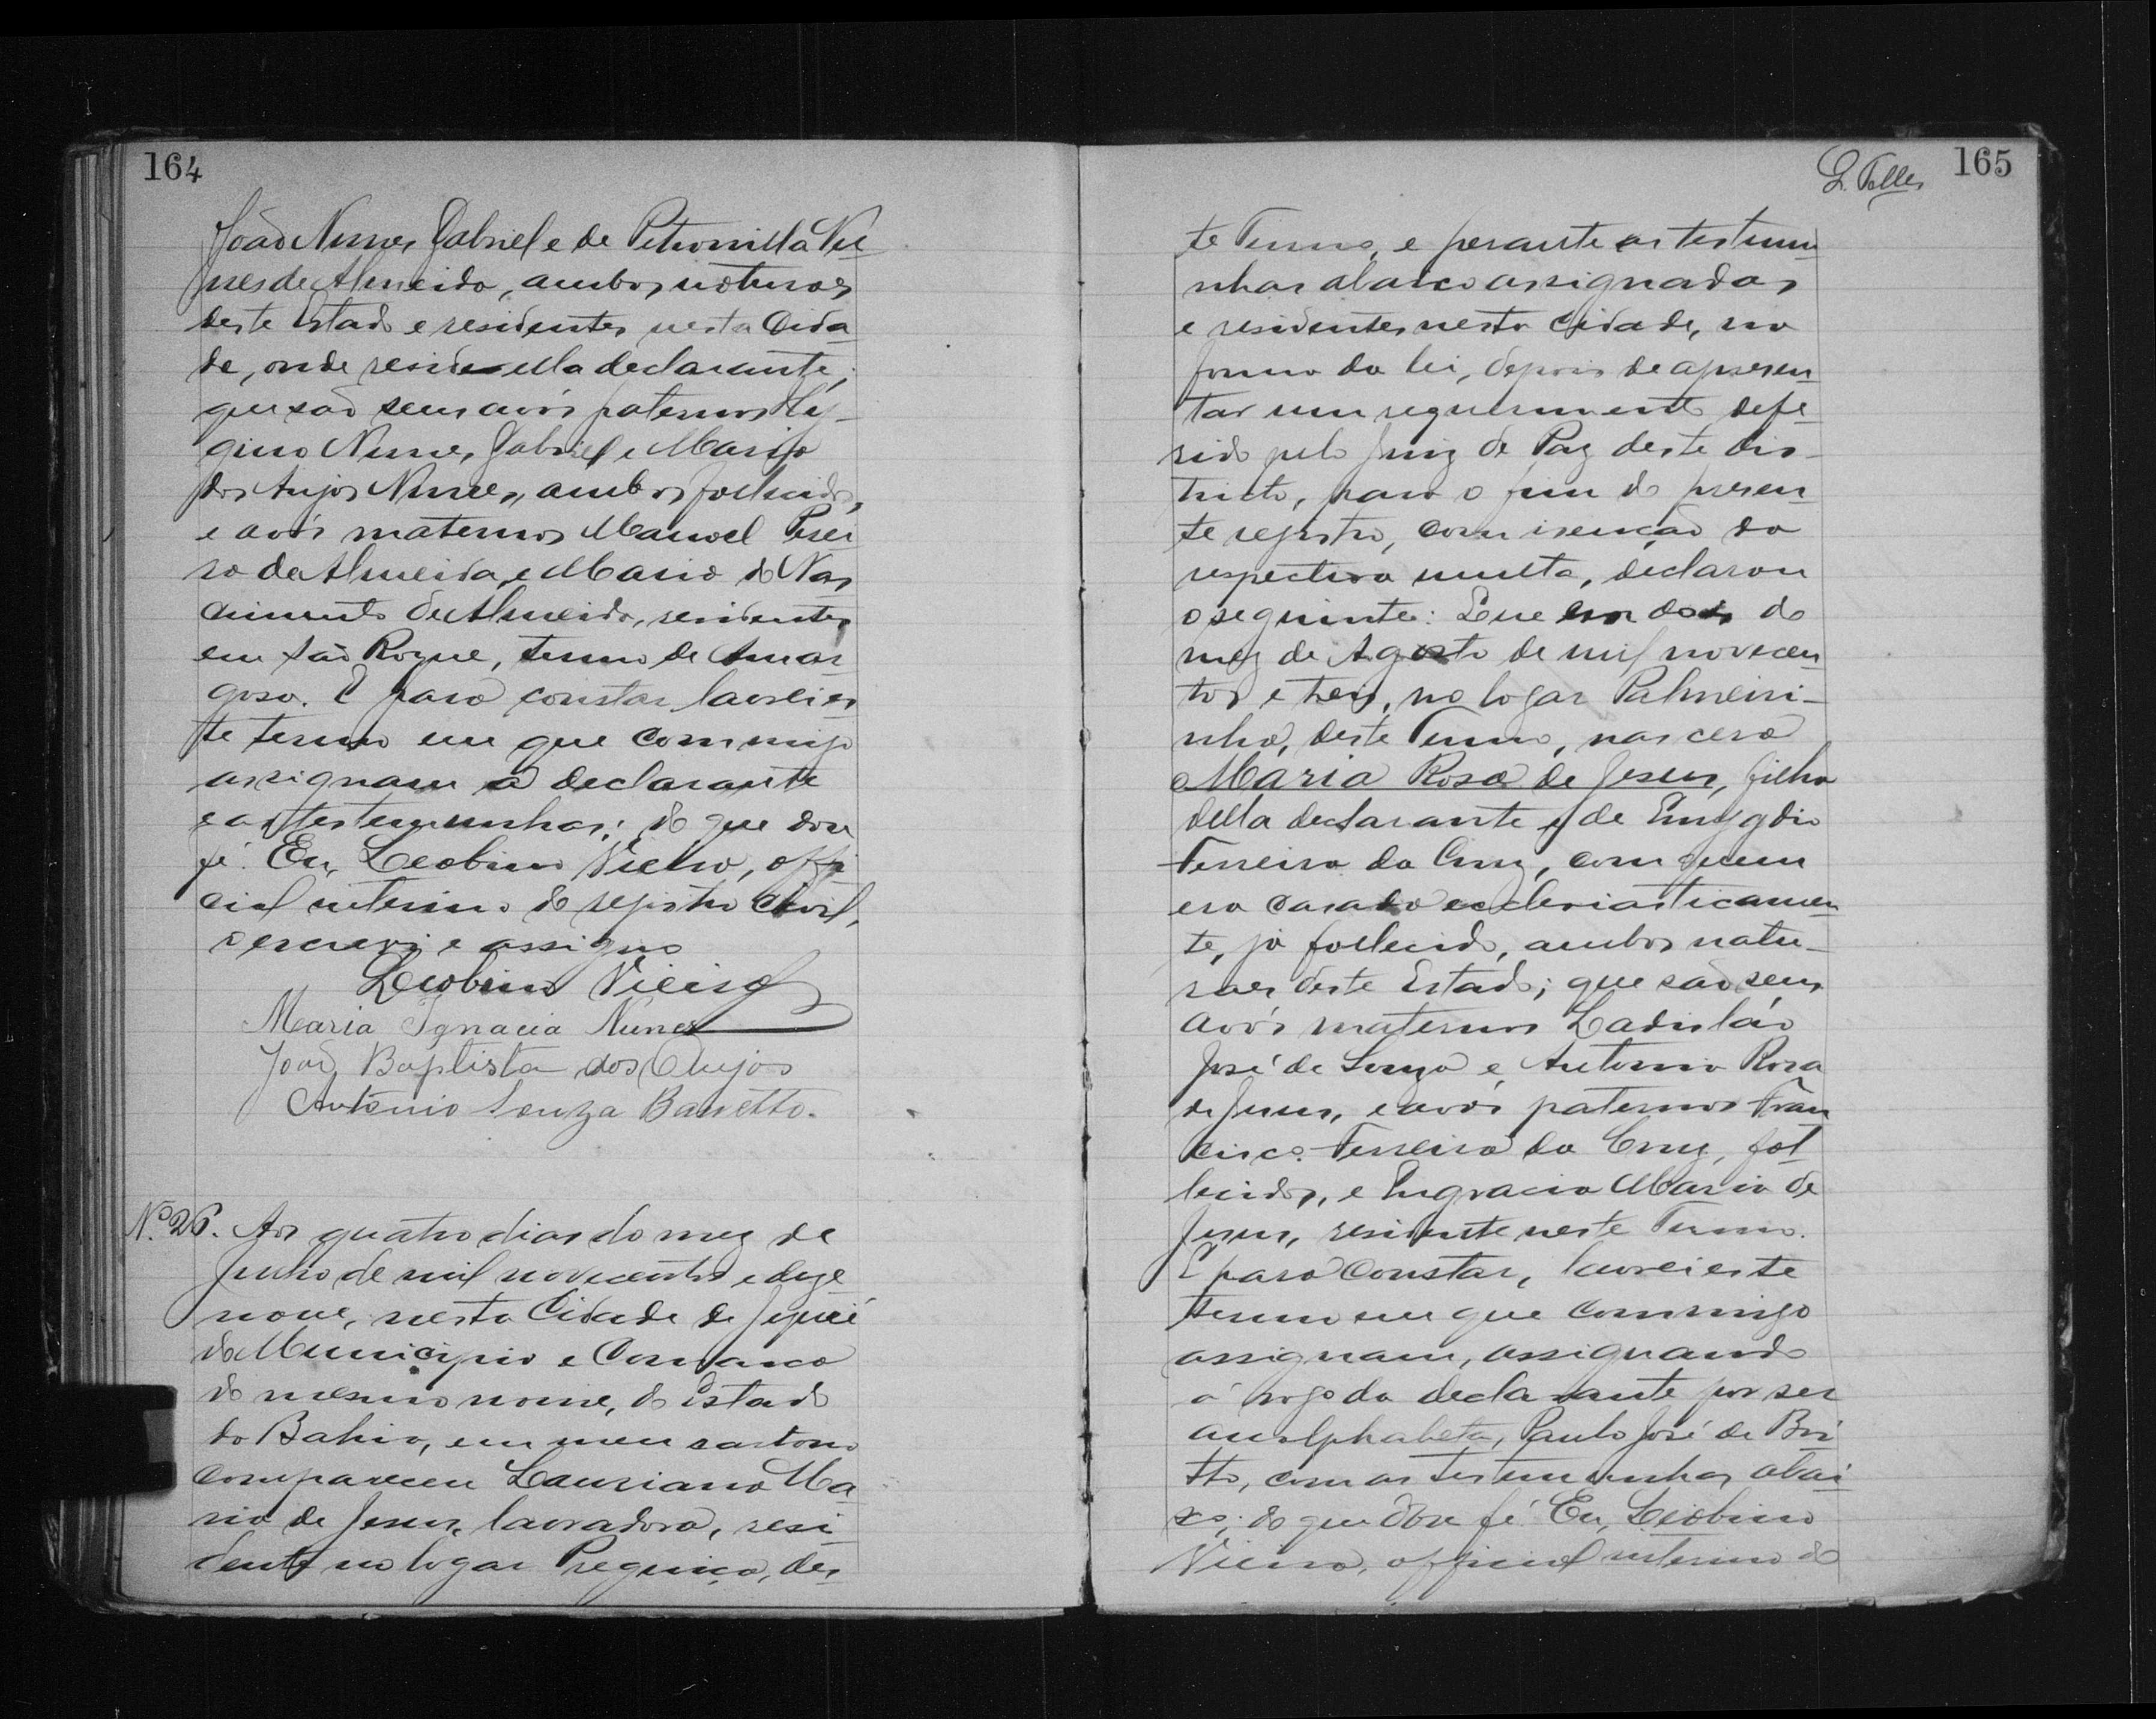 164
João Nunes Gabriel e de Petronilla Nu
nes de Almeida, ambos naturaes
deste Estado e residentes nesta Cida
de, onde reside ella declarante,
que são seus avós paternos Hy-
gino Nunes Gabriel e Maria
dos Anjos Nunes, ambos fallecidos,
e avós maternos Manoel Perei
ra de Almeida, e Maria do Nas
cimento de Almeida, residentes
em São Roque, termo de Amar
gosa. E para constar lavrei es
te termo em que commigo
assignam a declarante
e as testemunhas; do que dou
fé. Eu, Leobino Vieira, offi
cial interino do registro civil,
o escrevi e assigno
Leobino Vieira
Maria Ignacia Nunes
João Baptista dos Anjos
Antonio Souza Barretto.
Nº 26. Aos quatro dias do mez de
Junho de mil novecentos e deze
nove, nesta Cidade de Jequié
do Municipio e Comarca
do mesmo nome, do Estado
da Bahia, em meu cartorio
compareceu Lauriana Ma
ria de Jesus, lavradora, resi
dente no logar Preguiça, des
L. Telles
165
te Termo, e perante as testemu
nhas abaixo assignadas
e residentes nesta Cidade, na
forma da lei, depois de apresen
tar um requerimento defe
rido pelo Juiz de Paz deste Dis-
tricto, para o fim do presen
te registro, com isenção da
respectiva multa, declarou
o seguinte: Que em dois do
mez de Agosto de mil novecen
tos e tres, no logar Palmeiri-
nha, deste Termo, nascera
Maria Rosa de Jesus, filha
della declarante e de Emygdio
Ferreira da Cruz, com quem
era casada ecclesiasticamen
te, já fallecido, ambos natu-
raes deste Estado; que são seus
avós maternos Ladisláo
José de Souza e Antonia Rosa
de Jesus, e avós paternos Fran
cisco Ferreira da Cruz, fal
lecidos, e Engracia Maria de
Jesus, residente neste Termo.
E para constar, lavrei este
termo em que commigo
assignam, assignando
a rogo da declarante por ser
analphabeta, Paulo José de Bri
tto, com as testemunhas abai
xo; do que dou fé. Eu, Leobino
Vieira, official interino do